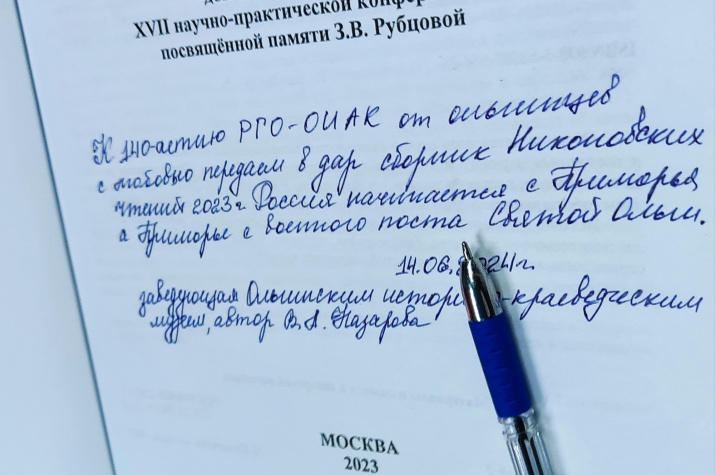 XVII научно-практической конфер
посвящённой памяти З.В. Рубцовой
К 140-летию РГО-ОИАК от ольгинцев
с любовью передаем в дар сборник Никоновских
чтений 2023 г. Россия начинается с Приморья
а Приморье с военного поста Святой Ольги.
14.06. 2024 г.
заведующая Ольгинским историко-краеведческим
музеем, автор В.А. Назарова
МОСКВА
2023